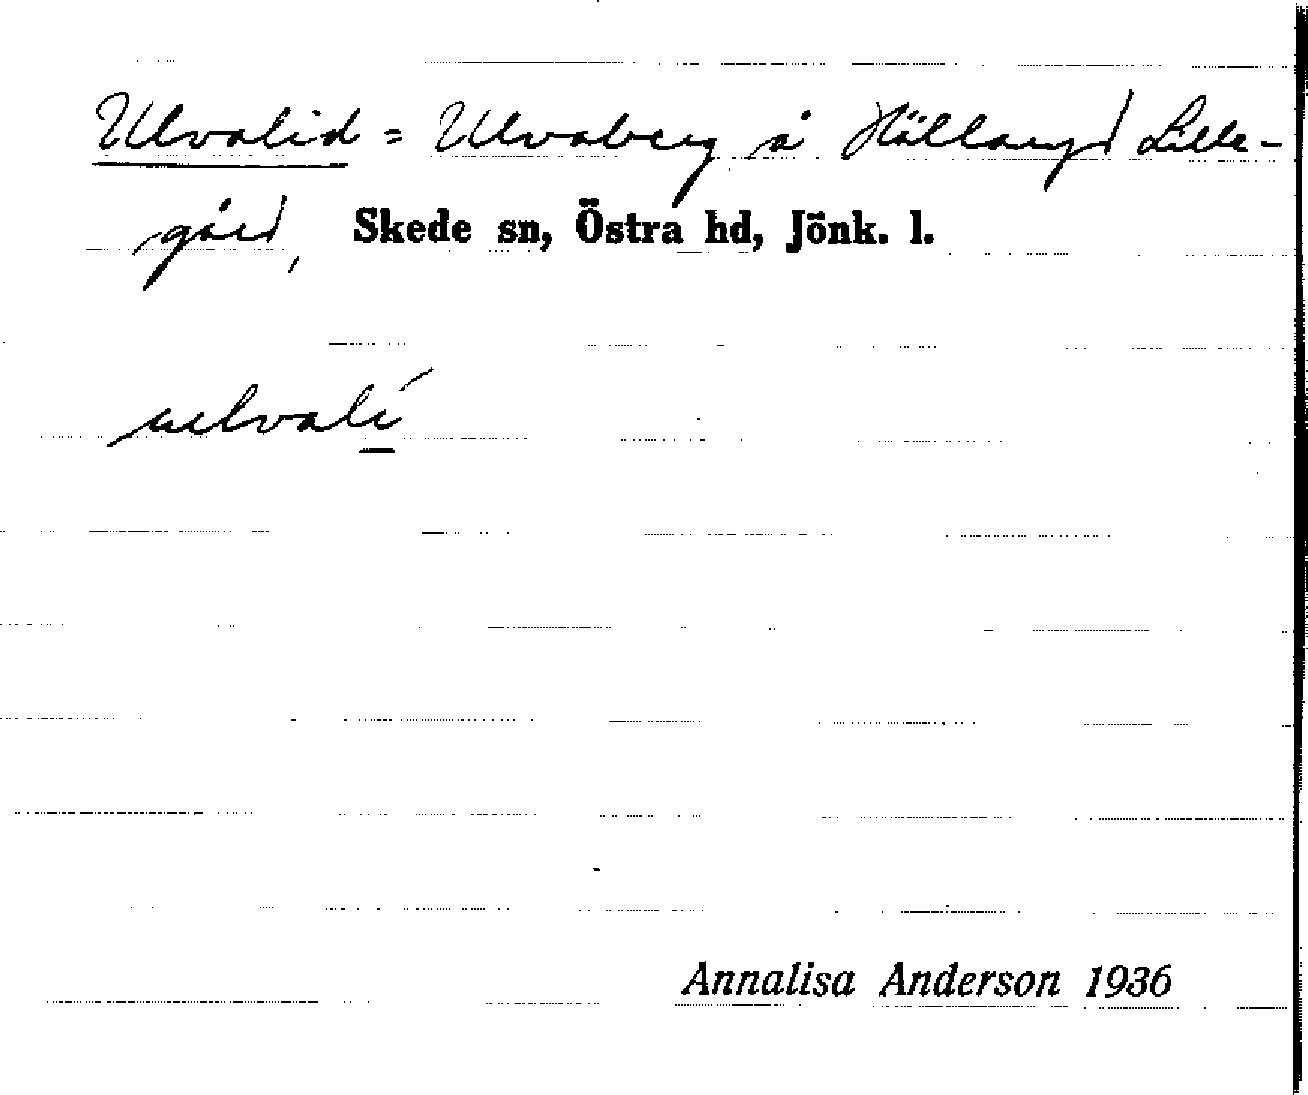 Ulvalid = Ulvaberg å Hällaryd Lille-
gård, Skede sn, Östra hd, Jönk. l.
ulvalí
Annalisa Anderson 1936